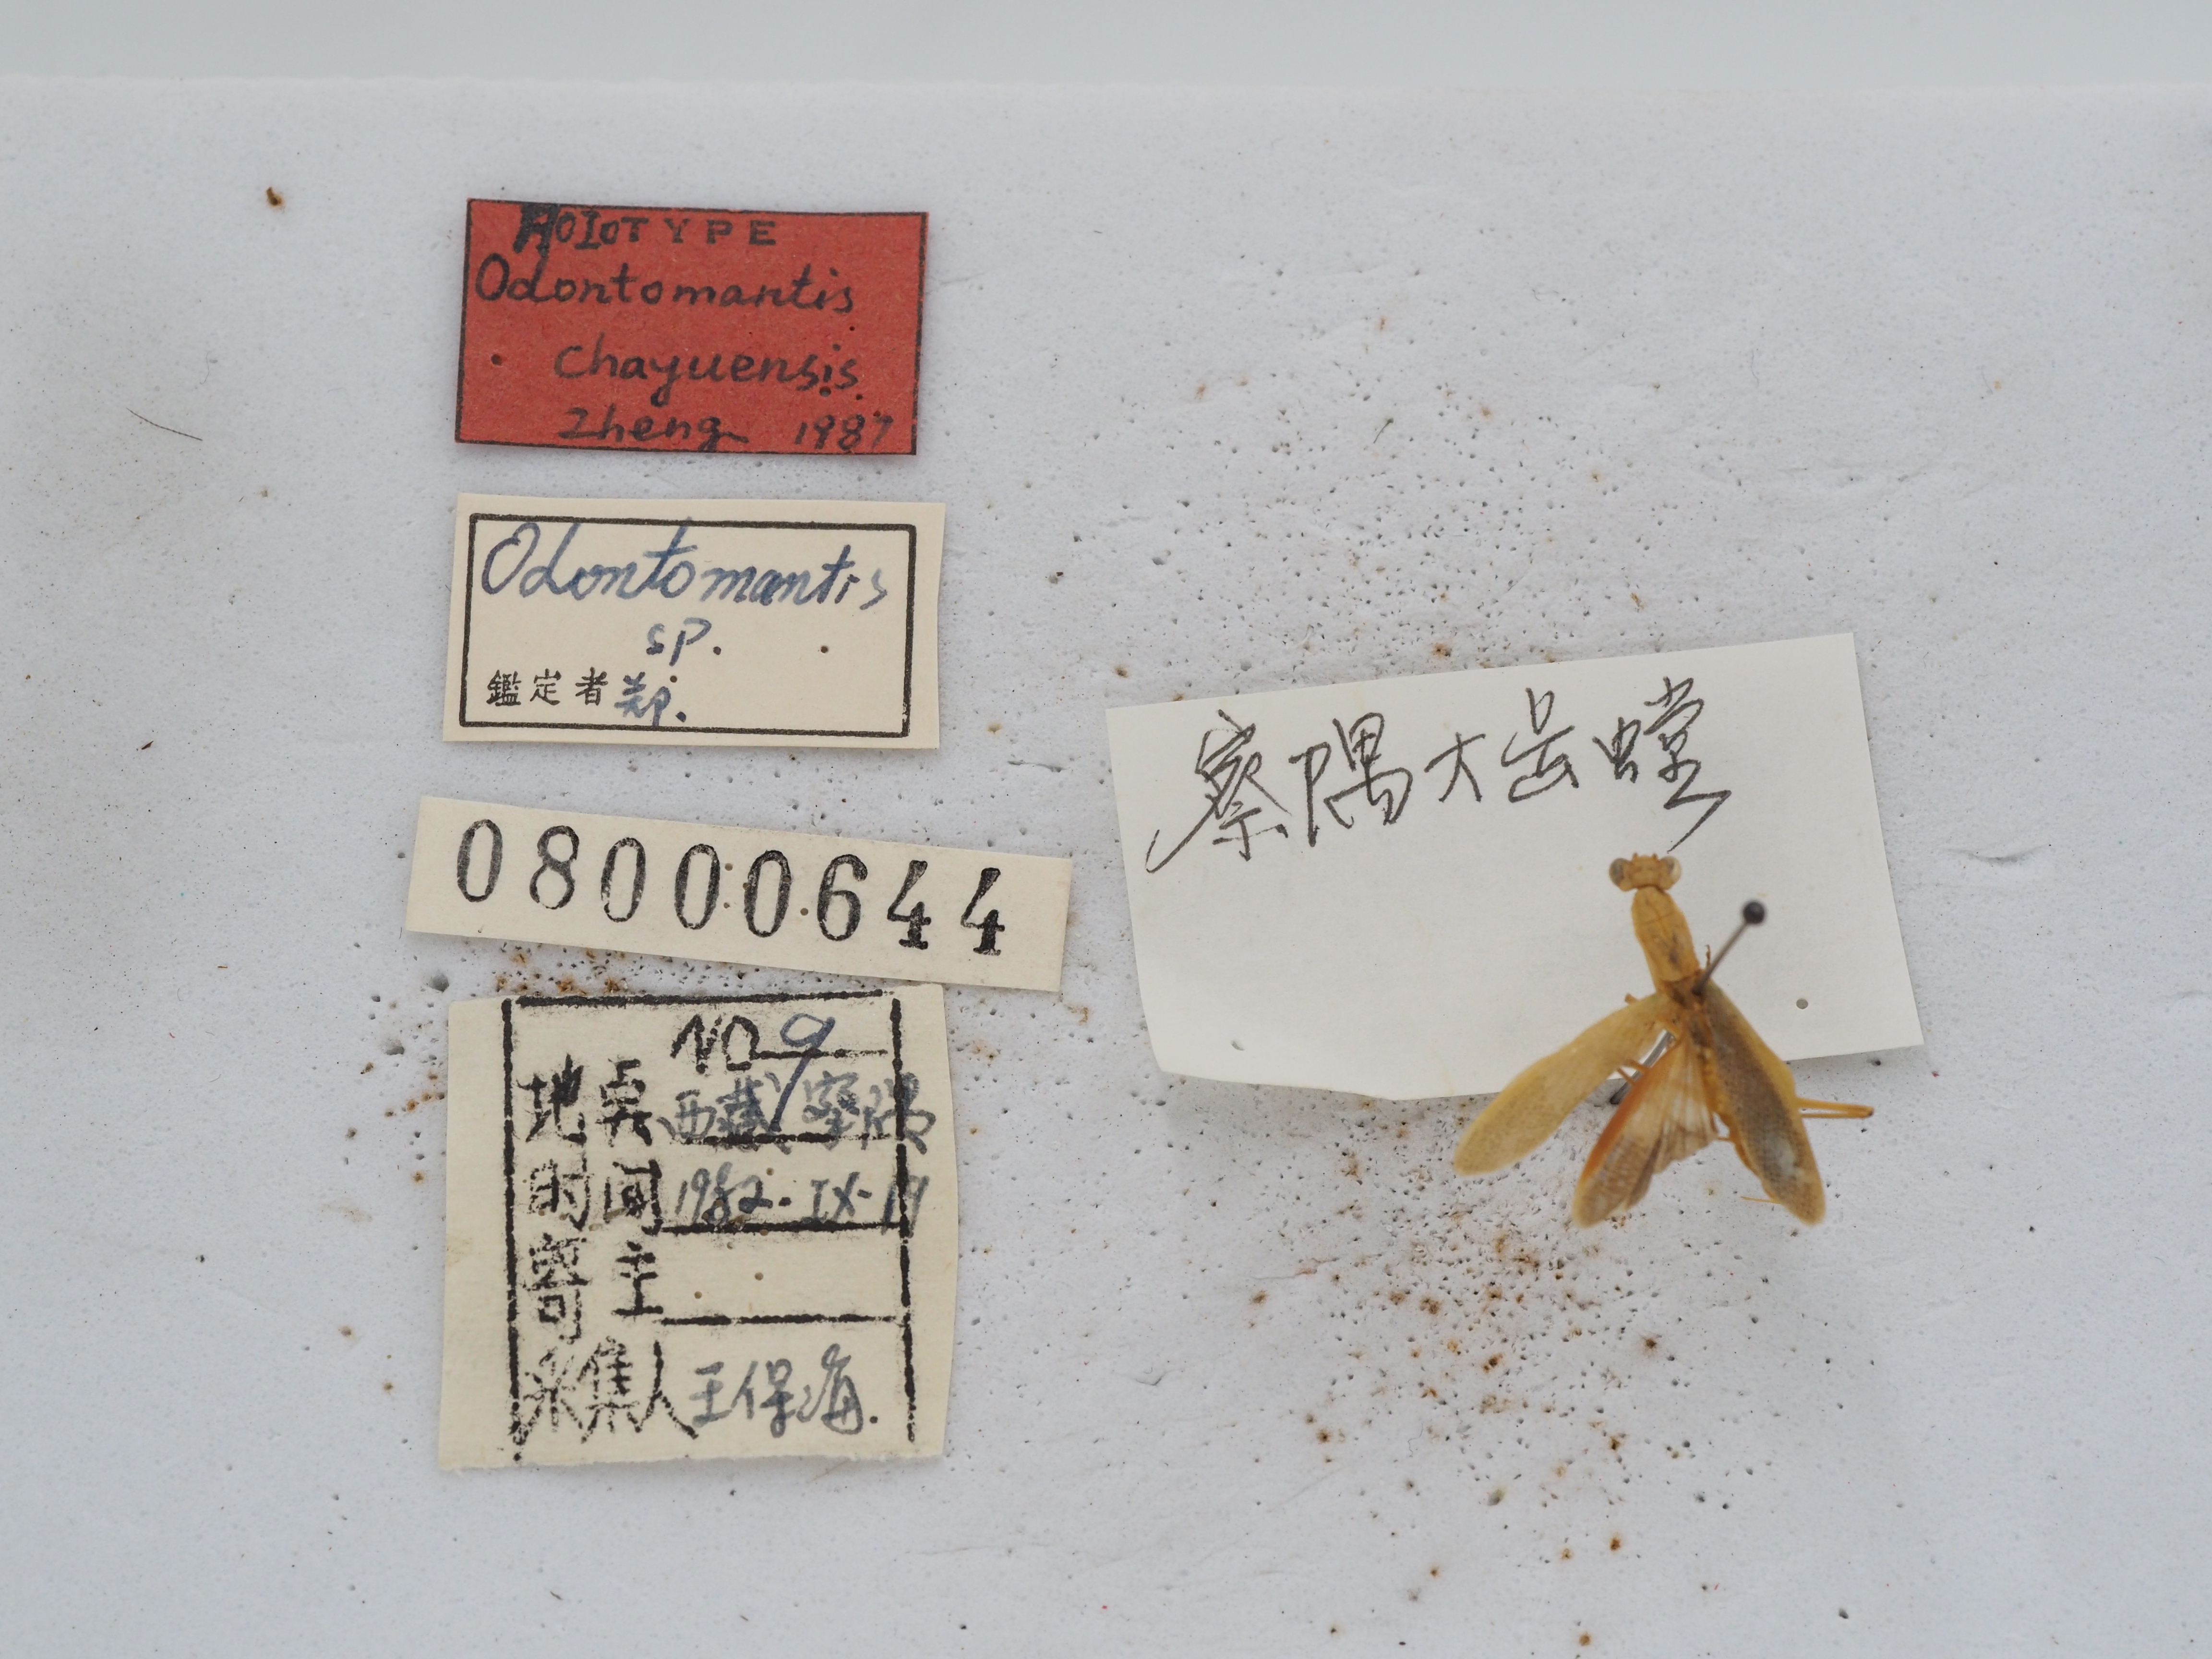 HOIOTYPE
Odontomantis
chayuensis
Zheng 1987
Odontomantis
sp.
鑑定者 郑.
08000644
NO 9
地点 西藏察隅
时间 1982.IX-19
寄主
采集人 王保海.
察隅大齿螳